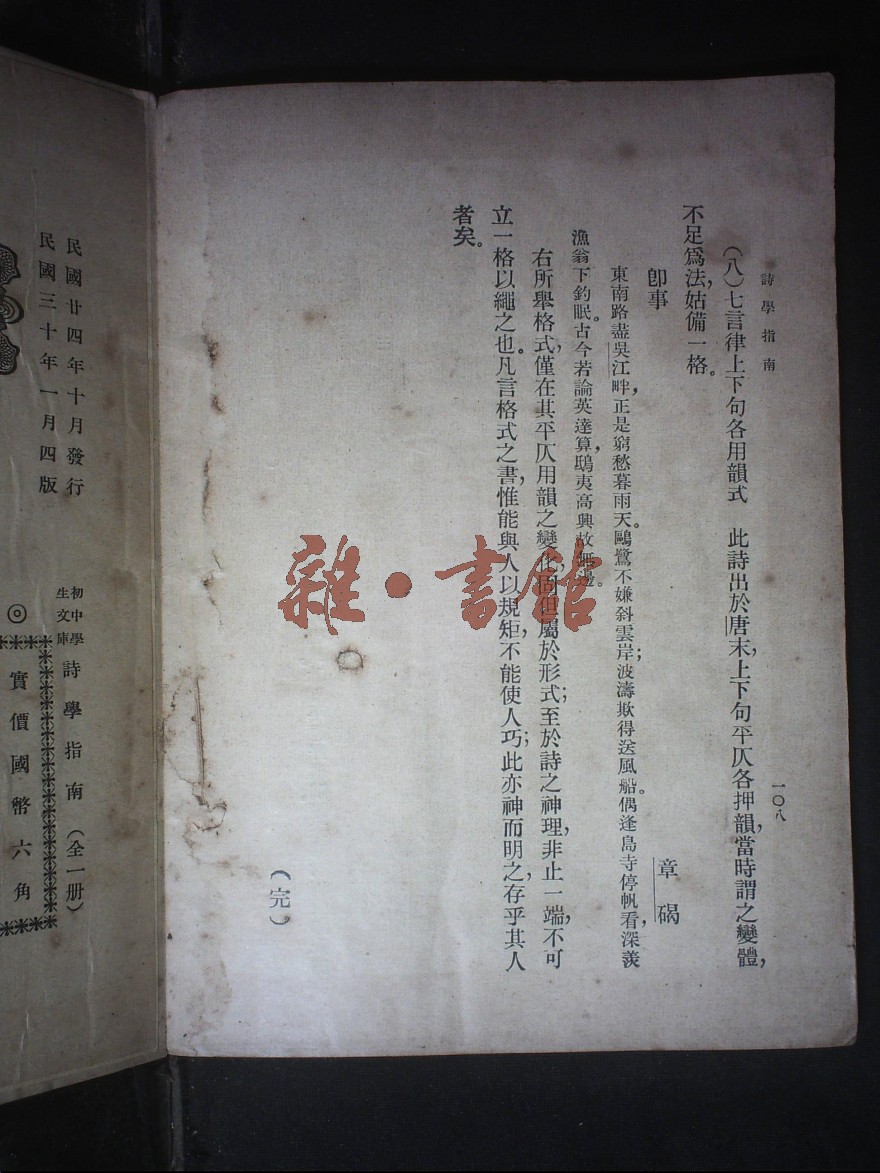 詩學指南
一〇八
(八)七言律上下句各用韻式　此詩出於唐末,上下句平仄各押韻,當時謂之變體,
不足爲法,姑備一格。
卽事　章碣
東南路盡吳江畔,正是窮愁暮雨天。鷗鷺不嫌斜雲岸;波濤欺得送風船。偶逢島寺停帆看,深羨
漁翁下釣眠。古今若論英達算,鴟夷高興故無邊。
右所舉格式,僅在其平仄用韻之變化,尙但屬於形式;至於詩之神理,非止一端,不可
立一格以繩之也。凡言格式之書,惟能與人以規矩,不能使人巧;此亦神而明之,存乎其人
者矣。
(完)
民國廿四年十月發行
民國三十年一月四版
初中學
生文庫
詩學指南(全一册)
◎
實價國幣六角
雜·書館